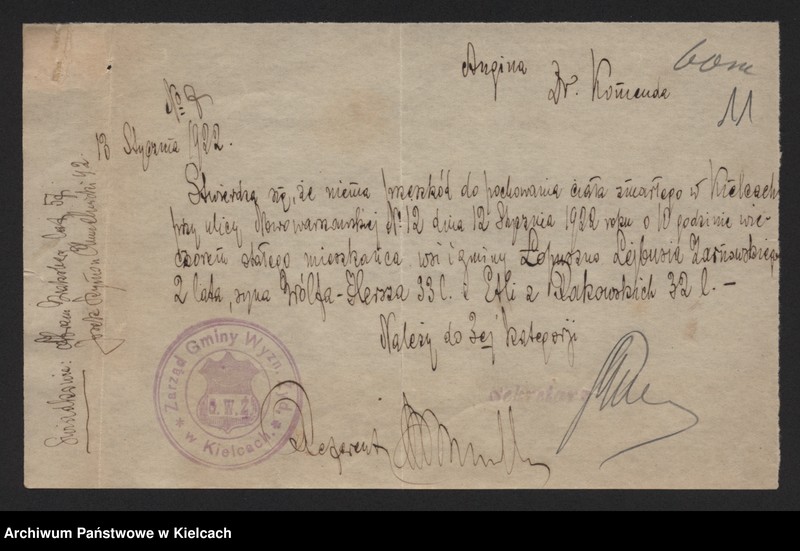 Angina
Dr. Komenda
11
No 7
13 Stycznia 1922.
Stwierdza się, że niema przeszkód do pochowania ciała zmarłego w Kielcach
przy ulicy Nowowarszawskiej No 12 dnia 12 Stycznia 1922 roku o 10 godzinie wie-
czorem stałego mieszkańca wsi i gminy Łopuszno Lejbusia Żarnowskiego
2 lata, syna Wolfa-Hersza 33 l. i Etli z Rakowskich 32 l. —
Należy do 3ej kategorji
Sekretarz
Referent
Zarząd Gminy Wyzn. Żyd.
w Kielcach
G.W.Ż
Świadkowie: lat 57
42.
Archiwum Państwowe w Kielcach